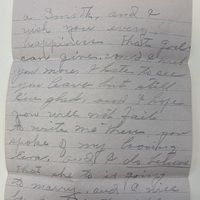 a Smith, and I
wish you every
happiness that God
can give, and I
you more I hate to see
you leave but still
am glad, and I hope
you will not fail
to write me thus you
spoke of my having
and I do believe
that she is going
to marry, and a nice